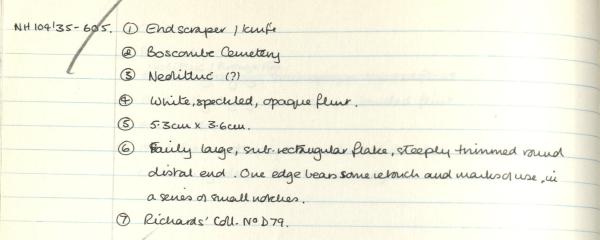 NH 104'35-605. ① Endscraper / knife
② Boscombe Cemetery
③ Neolithic (?)
④ White, speckled, opaque flint.
⑤ 5.3cm x 3.6cm.
⑥ Fairly large, sub-rectangular flake, steeply trimmed round
distal end. One edge bears some retouch and marks of use, in
a series of small notches.
⑦ Richards' Coll. No D79.